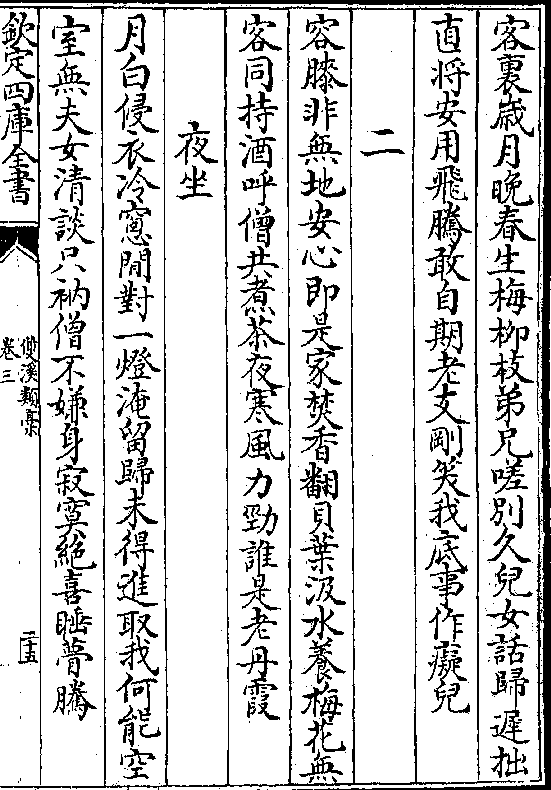 客裏嵗月晚春生梅栁枝弟兄嗟别久兒女話歸遲拙
直将安用飛騰敢自期老夫剛笑我底事作癡兒
二
容膝非無地安心即是家焚香翻貝葉汲水養梅花無
客同持酒呼僧共煮茶夜寒風力勁誰是老丹霞
夜坐
月白侵衣冷窓間對一燈淹留歸未得進取我何能空
室無夫女清談只衲僧不嫌身寂寞絶喜睡瞢騰
欽定四庫全書
雙溪類藁
卷三
二十五